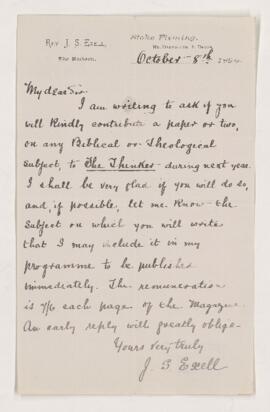 Rev. J. S. Exell,
The Rectory.
Stoke Fleming,
October 8th
My dear Sir
I am writing to ask if you
will kindly contribute a paper or two,
on any Biblical or Theological
subject, to The Thinker during next year.
I shall be very glad if you will do so,
and, if possible, let me know the
subject on which you will write
that I may include it in my
programme to be published
immediately. The remuneration
is 7/6 each page of the Magazine.
An early reply will greatly oblige
Yours very truly
J. S Exell